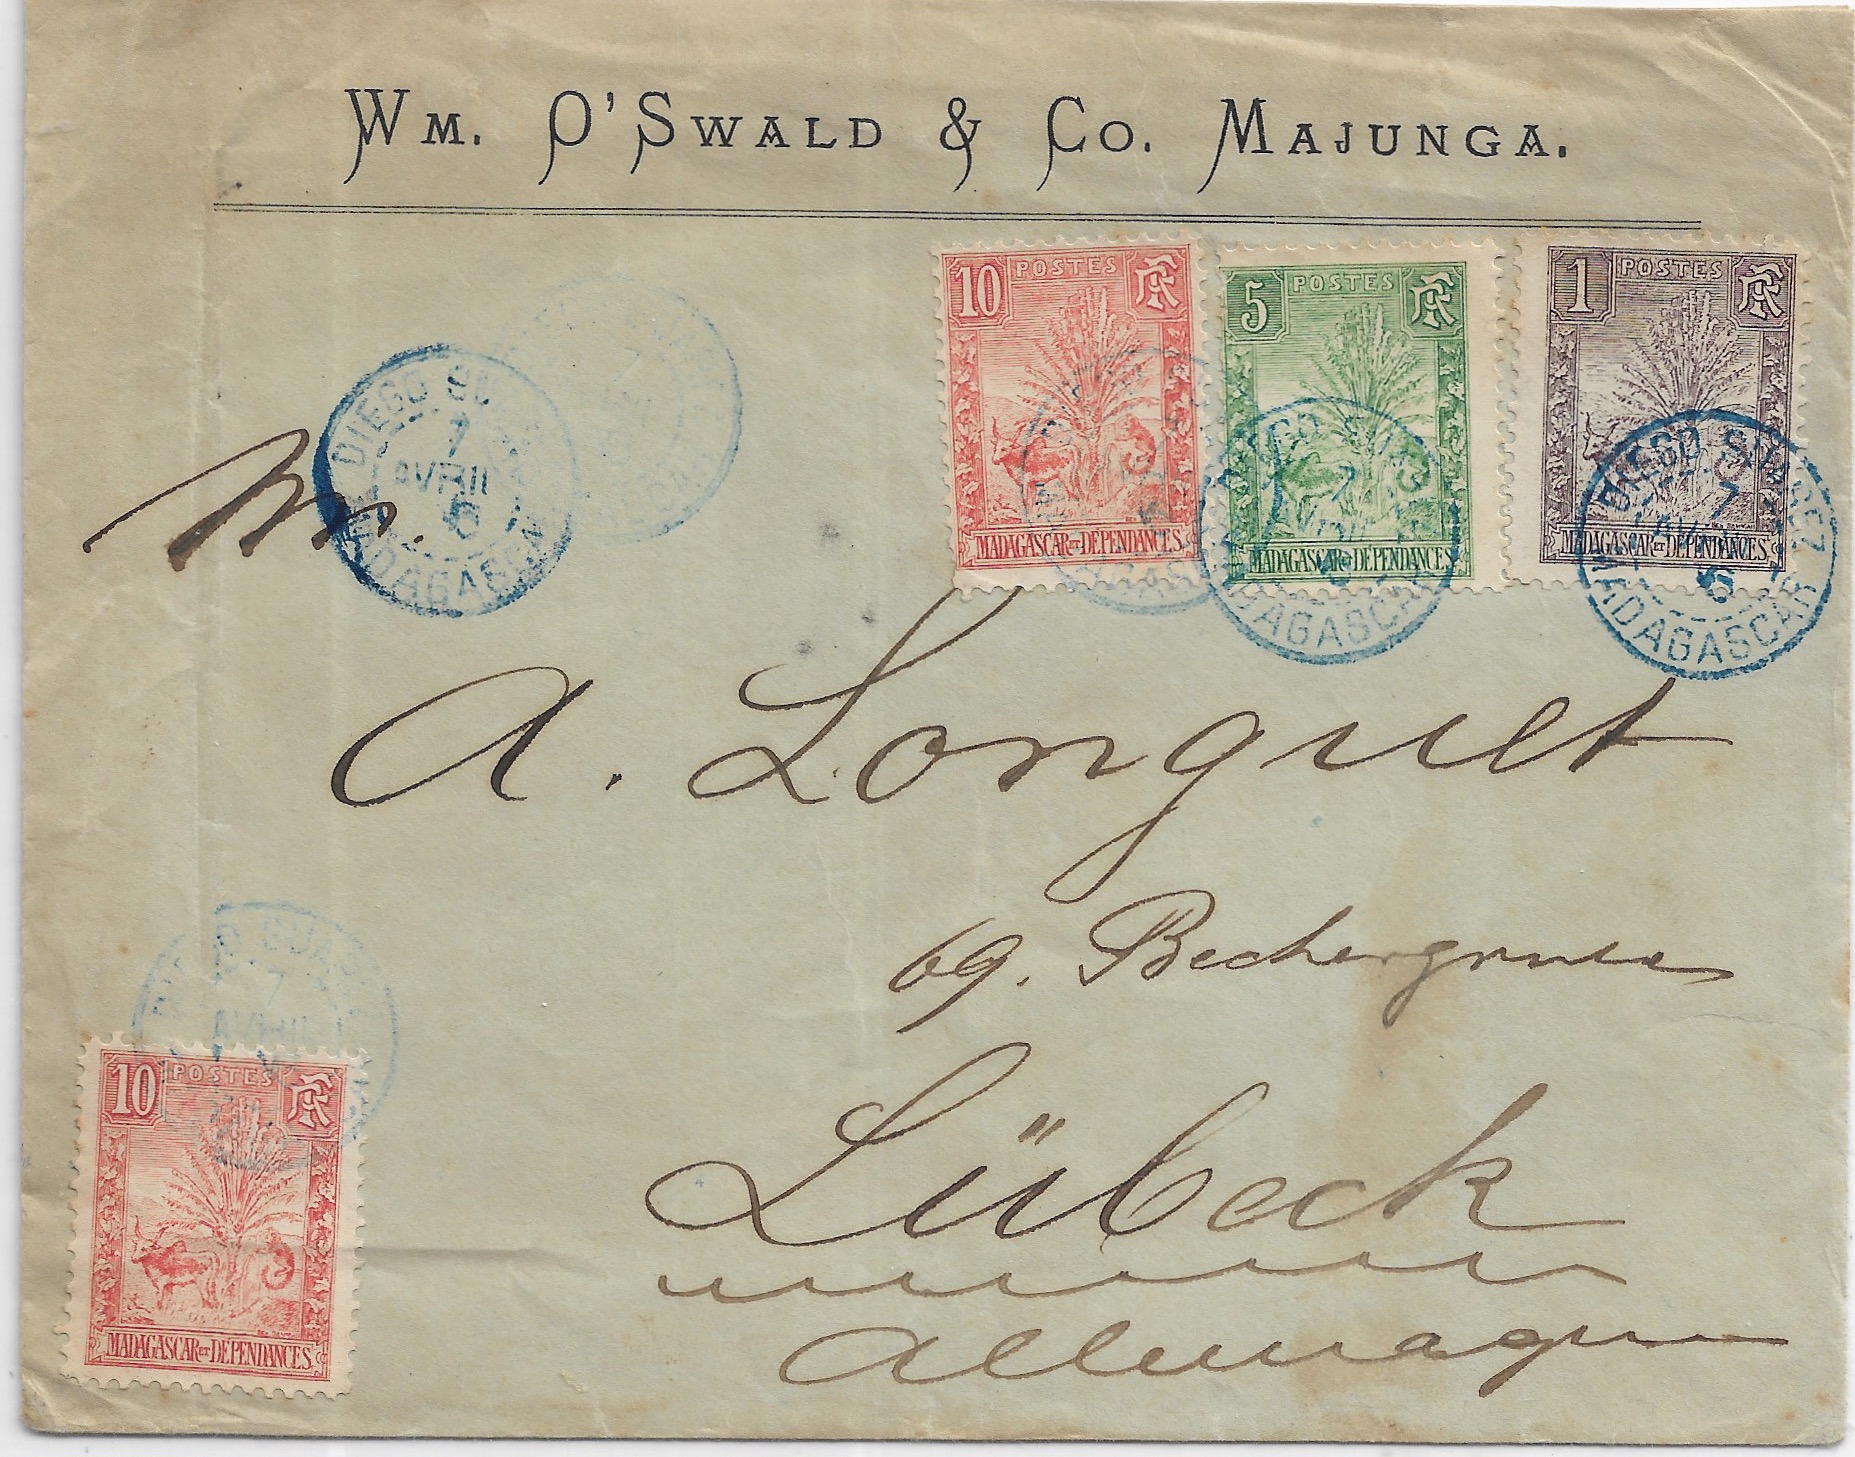 WM. O'SWALD & CO. MAJUNGA.
10 POSTES RF
MADAGASCAR ET DÉPENDANCES
5 POSTES RF
MADAGASCAR ET DÉPENDANCES
1 POSTES RF
MADAGASCAR ET DÉPENDANCES
DIEGO SUAREZ
7
AVRIL
MADAGASCAR
DIEGO SUAREZ
7
AVRIL
MADAGASCAR
DIEGO SUAREZ
7
AVRIL
6
MADAGASCAR
Mr.
A. Longuet
69. Bechergrube
Lübeck
Allemagne
7
AVRIL
10 POSTES RF
MADAGASCAR ET DÉPENDANCES